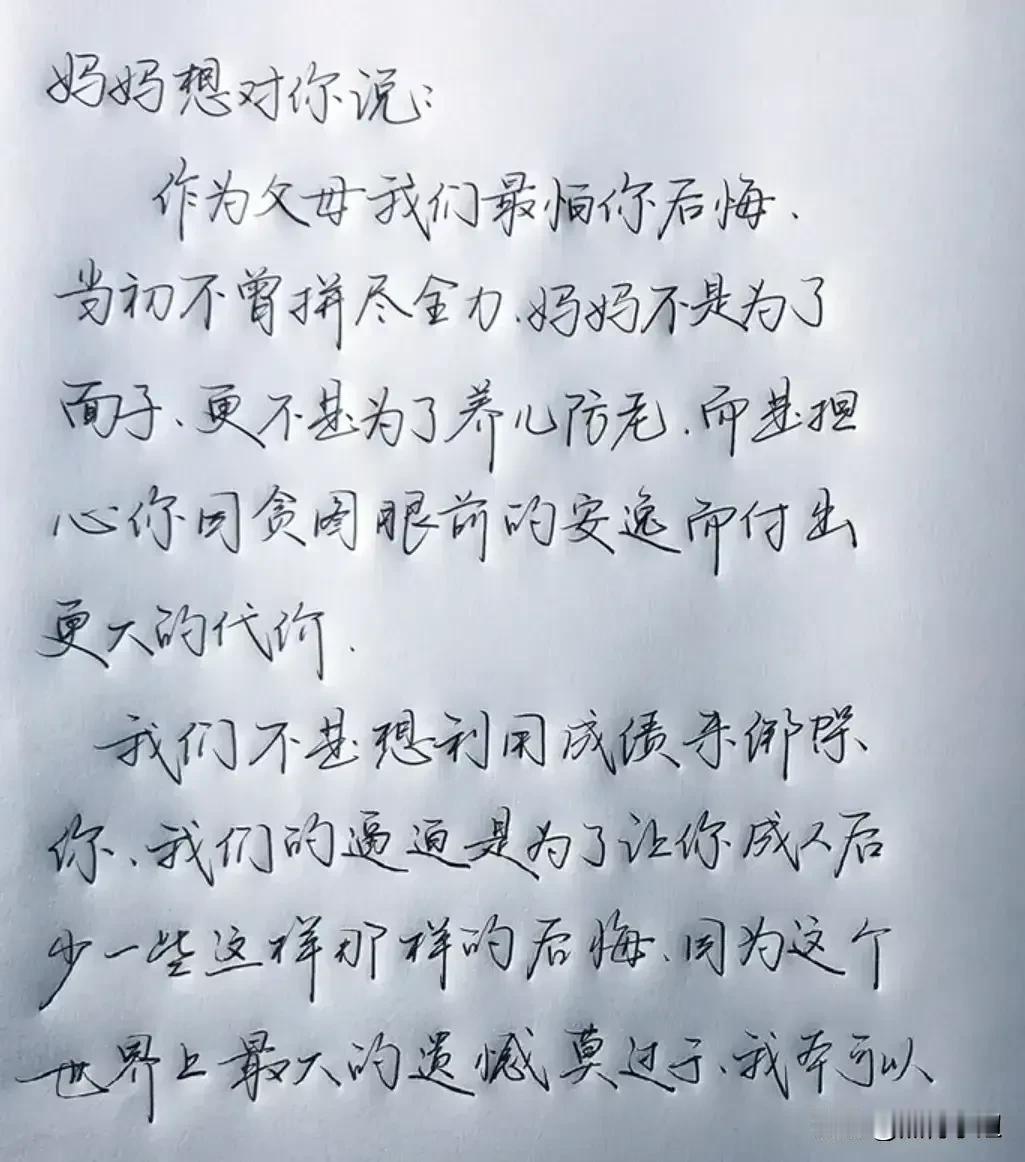 妈妈想对你说：
作为父母我们最怕你后悔、
当初不曾拼尽全力、妈妈不是为了
面子、更不是为了养儿防老、而是担
心你因贪图眼前的安逸而付出
更大的代价.
我们不是想利用成绩来绑架
你、我们的逼迫是为了让你成人后
少一些这样那样的后悔、因为这个
世界上最大的遗憾莫过于、我本可以